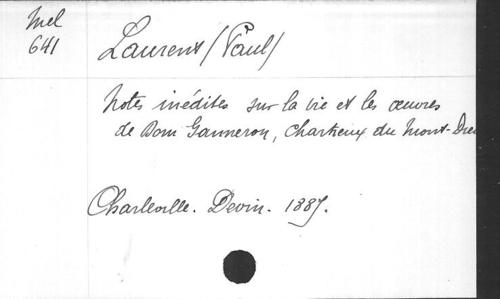 Mel
641
Laurent (Paul)
Notes inédites sur la vie et les œuvres
de Dom Ganneron, Chartreux du Mont-Dieu
Charleville. Devin. 1887.